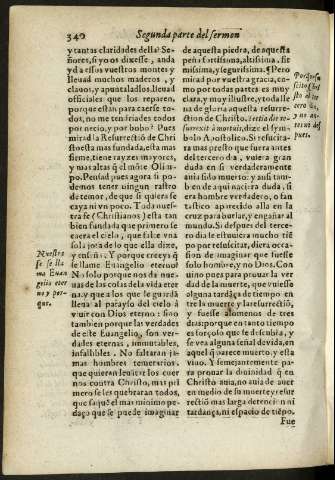 340 Segunda parte del sermon
y tantas claridades della? Se-
ñores, si yo os dixesse, anda
yd a essos vuestros montes y
lleuad muchos maderos, y
clauos, y apuntaladlos. lleuad
officiales que los reparen,
porque estan para caerse to-
dos, no me terniades todos
por necio, y por bobo? Pues
mirad la Resurrectió de Chri
sto esta mas fundada, esta mas
firme, tiene rayzes mayores,
y mas altas q̃ el môte Olim-
po. Pensad pues agora si po
demos tener ningun rastro
de temor, de que si quiera se
cayа ni vn poco. Toda vues-
tra fe (Christianos) esta tan
bien fundada que primero se
caera el cielo, que falte vna
sola jota de lo que ella dize,
y enseña. Y porque creeys q̃
se llame Euangelio eterno?
No solo porque nos da nue-
uas de las cosas de la vida eter
na, y que a los que le guardã
lleua al parayso del cielo à
viuir con Dios eterno: sino
tambien porque las verdades
de este Euangelio, son ver-
dades eternas, immutables,
infalibles. No faltaran ja-
mas hombres temerarios,
que quieren leuãtar los cuer
nos contra Christo, mas pri
mero se les quebraran todos,
que saquẽ el mas minimo pe-
daço que se puede imaginar
Nuestra
fe se lla
ma Euan
gelio eter
no y por
que.
de aquesta piedra, de aquesta
peña fortissima, altissima, fir
missima, y segurissima. ¶ Pero
mirad por vuestra gracia, co-
mo por todas partes es muy
clara, y muy illustre, y toda lle
na de gloria aquesta resurre-
ction de Christo. Tertia die re-
surrexit à mortuis, dize el sym-
bolo Apostolico. Si resucita-
ra mas presto que fuera antes
del tercero dia, vuiera gran
duda en si verdaderamente
auia sido muerto: y aussi tam-
bien de aqui naciera duda, si
era hombre verdadero, o fan
tastico aparecido alla en la
cruz para burlar, y engañar al
mundo. Si despues del terce-
ro dia estuuiera mucho tiẽ
po por resuscitar, diera occa
sion de imaginar que fuesse
solo hombre, y no Dios. Con
uino pues para prouar la ver
dad de la muerte, que vuiesse
alguna tardãça de tiempo en
tre la muerte y la resurrectiõ,
y fuesse alomenos de tres
dias: porque en tanto tiempo
es forçoso que se descubra, y
se vea alguna señal de vida, en
aquel q̃ parece muerto y esta
viuo. Y semejantemente pa-
ra prouar la diuinidad q̃ en
Christo auia, no auia de auer
en medio de su muerte y resur
rectiõ mas larga detencion ni
tardança, ni espacio de tiẽpo.
Fue
Porque re
suscito Chri
sto al ter
cero dia,
y no an-
tes ni des
pues.